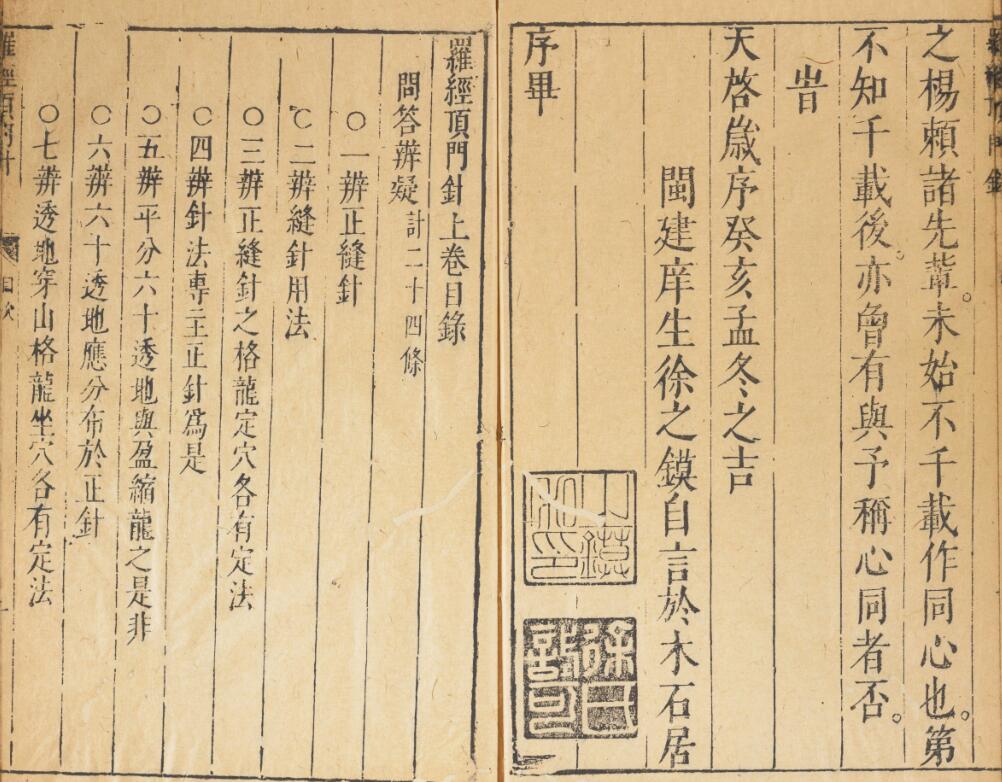 之楊賴諸先輩。未始不千載作同心也。第
不知千載後。亦曾有與予稱心同者否。
旹
天啓歲序癸亥孟冬之吉
閩建庠生徐之鏌自言於木石居
序畢
羅經頂門針上卷目錄
問答辨疑計二十四條
○一辨正縫針
○二辨縫針用法
○三辨正縫針之格龍定穴各有定法
○四辨針法專主正針爲是
○五辨平分六十透地與盈縮龍之是非
○六辨六十透地應分布於正針
○七辨透地穿山格龍坐穴各有定法
羅經頂門針
目次